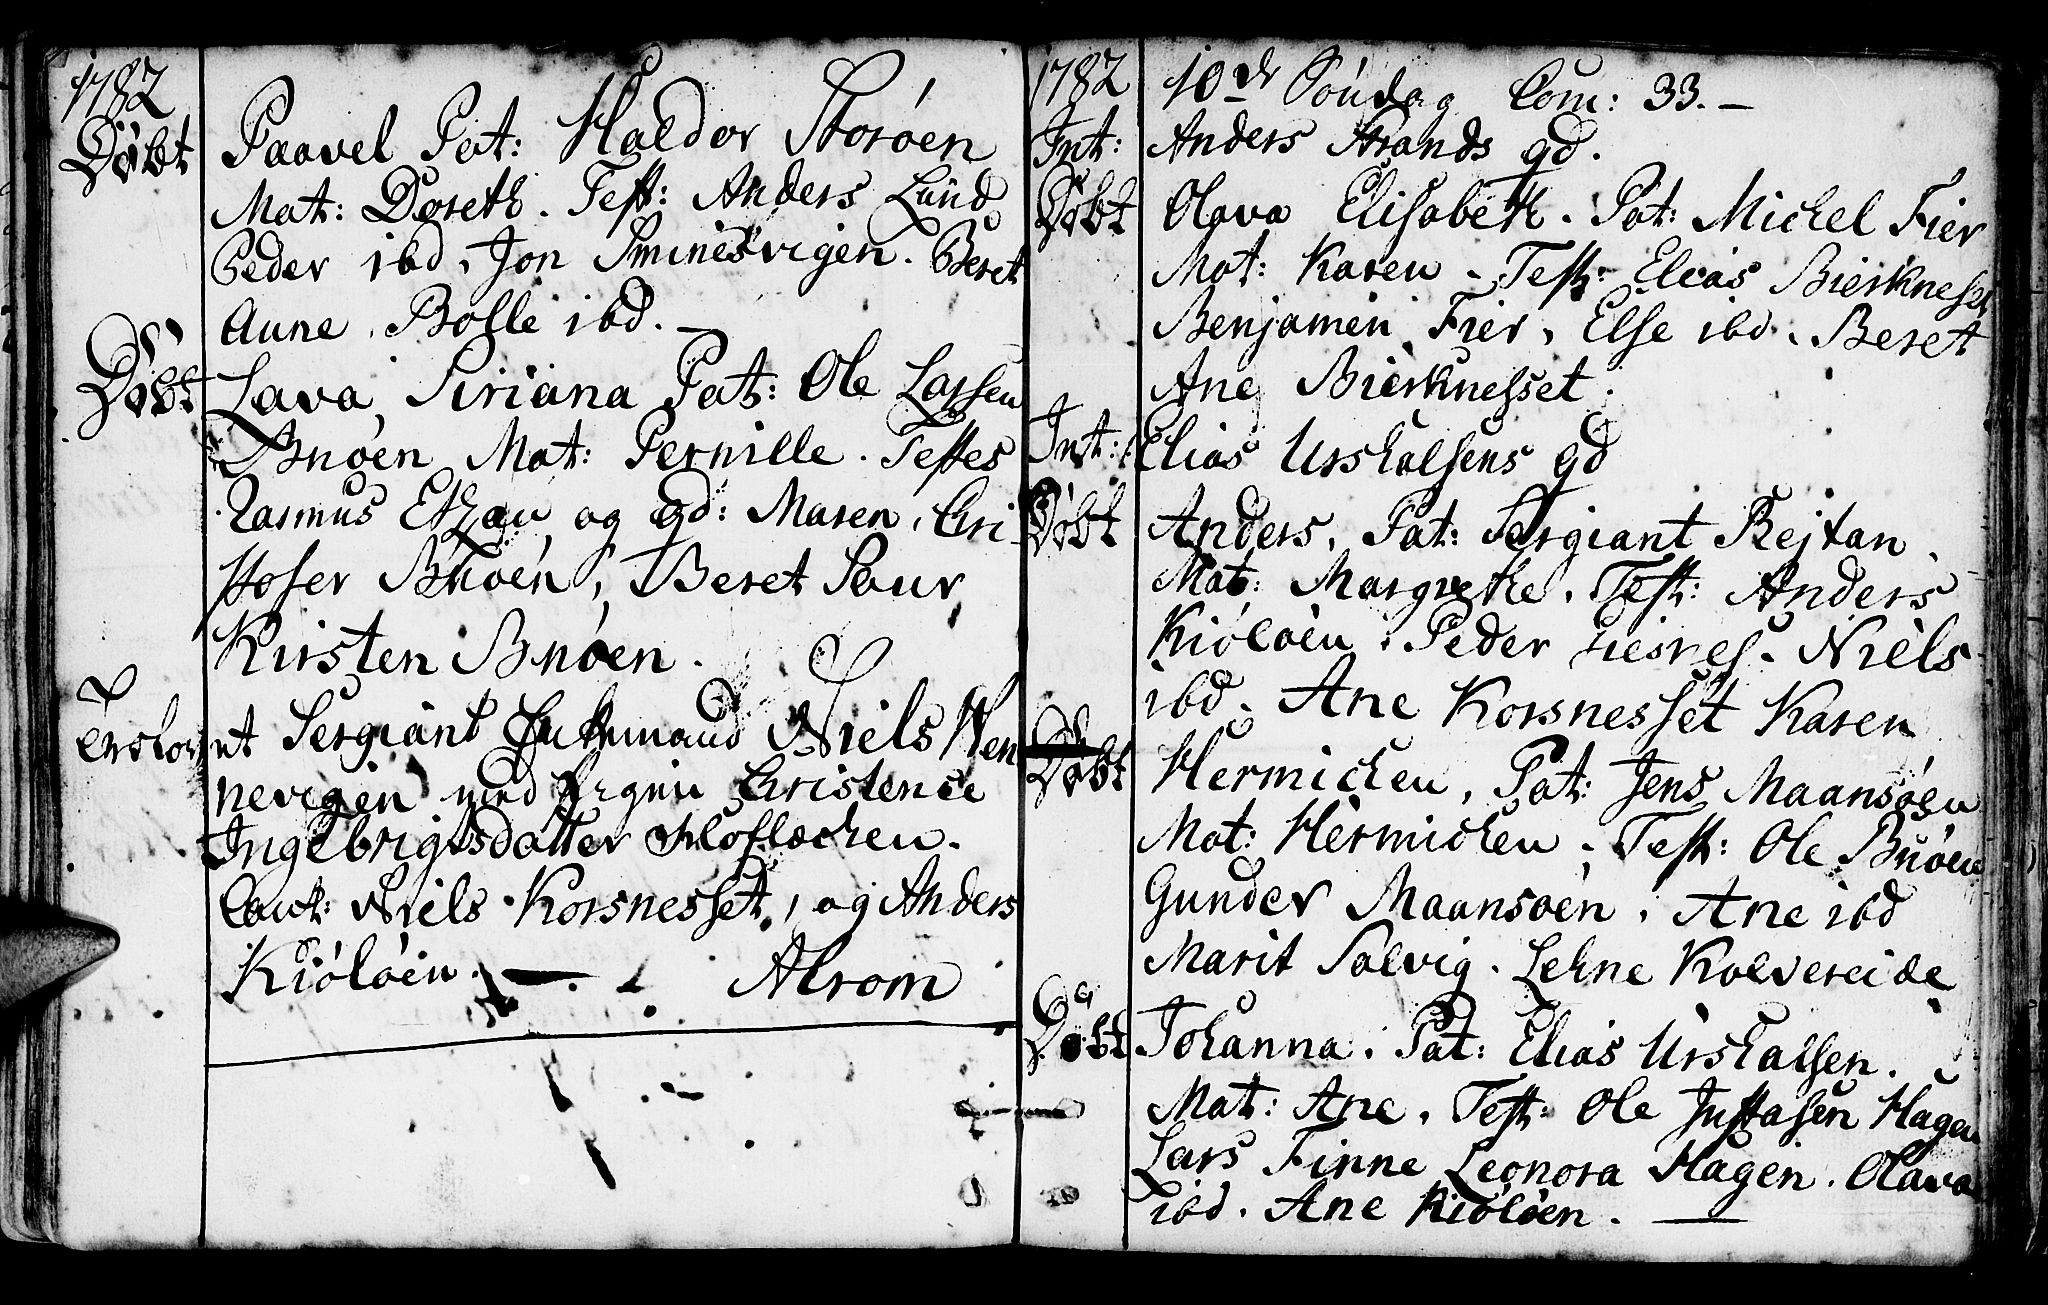 1782
Döbt
Paavel Pat: Haldor Storöen
Mat: Doreth. Test: Anders Lund
Peder ibd, Jon Sminesvigen. Beret
Aune. Bolle ibd. —
Döbt
Lava Siriana Pat: Ole Larsen
Buöen Mat: Pernille. Testes
Rasmus og gd: Maren, Cri
stofer Buöen, Beret Saur
Kirsten Buöen.
Sergiant Niels Hen
nevigen med Cristence
Ingebrigtsdatter
Caut: Niels Korsnesset, og Anders
Kiölöen. — Alrom
1782
10de Söndag Com: 33. —
Int:
Anders Strands gd.
Döbt
Olava Elisabeth. Pat: Michel Fier
Mat: Karen. Test: Elias Bierknesset
Benjamin Fier, Else ibd. Beret
Ane Bierknesset.
Int:
Elias Urskalsens gd
Döbt
Anders. Pat: Sergiant Rejtan.
Mat: Margrethe. Test: Anders
Kiölöen. Peder Niels
ibd. Ane Korsnesset Karen
Döbt
Hermichen, Pat: Jens Maansöen
Mat: Hermichen. Test: Ole Buöen
Gunder Maansöen, Ane ibd
Marit Salvig. Lehne Kolvereide
Döbt
Johanna. Pat: Elias Urskalsen.
Mat: Ane. Test: Ole Justasen Hagen
Lars Finne Leonora Hagen. Olava
ibd. Ane Kiölöen. —